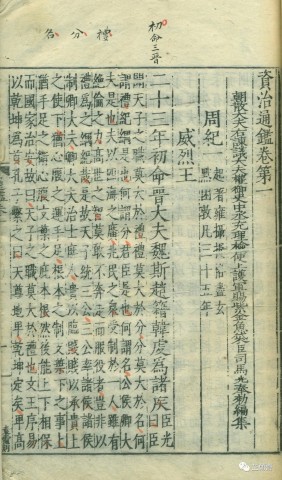 初命三晉
禮
分
名
資治通鑑卷第一
朝散大夫右諫議大夫權御史中丞充理檢使上護軍賜紫金魚袋臣司馬光奉勅編集
周紀一
起著雍攝提格盡玄
黓困敦凡三十五年
威烈王
二十三年初命晉大夫魏斯趙籍韓虔爲諸侯臣光曰臣
聞天子之職莫大於禮禮莫大於分分莫大於名何
謂禮紀綱是也何謂分君臣是也何謂名公侯卿大
夫是也夫以四海之廣兆民之衆受制於一人雖有
絶倫之力高世之智莫敢不奔走而服役者豈非以
禮爲之綱紀哉是故天子統三公三公率諸侯諸侯
制卿大夫卿大夫治士庶人貴以臨賤賤以承貴上
之使下猶心腹之運手足根本之制支葉下之事上
猶手足之衛心腹支葉之庇本根然後能上下相保
而國家治安故曰天子之職莫大於禮也文王序易
以乾坤爲首孔子繫之曰天尊地卑乾坤定矣卑高